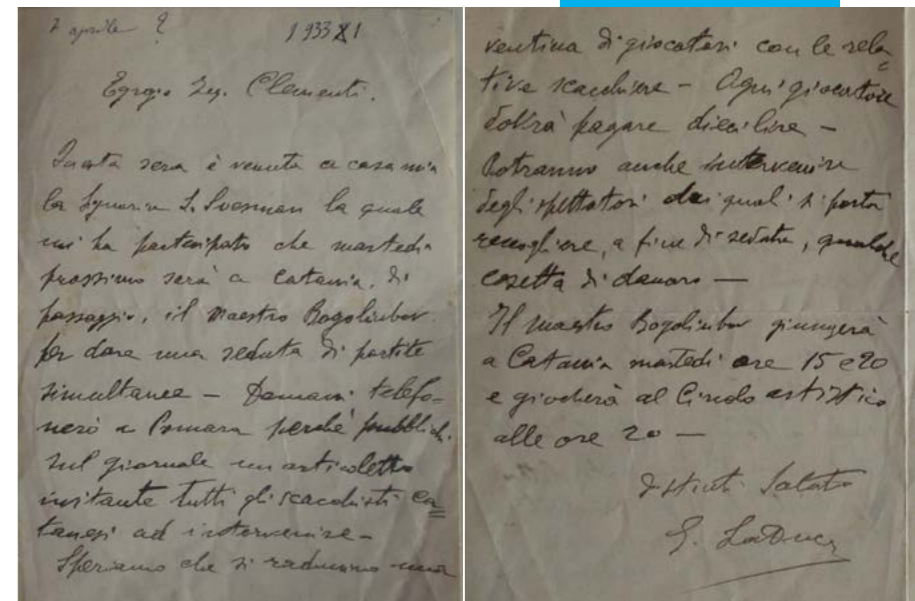 2 aprile ? 1933 XI
Egregio Sig. Clementi.
Questa sera è venuta a casa mia
la Signorina S. la quale
mi ha partecipato che martedì
prossimo sarà a Catania, di
passaggio, il Maestro Bogoliubov
per dare una seduta di partite
simultanee - Domani telefo-
nerò a Pomara perché pubblichi
sul giornale un articoletto
invitante tutti gli scacchisti ca=
tanesi ad intervenire -
Speriamo che si radunino una
ventina di giocatori con le rela=
tive scacchiere - Ogni giocatore
dovrà pagare dieci lire -
Potranno anche intervenire
degli spettatori dai quali si potrà
raccogliere, a fine di seduta, qualche
cosetta di danaro -
Il maestro Bogoliubov giungerà
a Catania martedì ore 15 e 20
e giocherà al Circolo artistico
alle ore 20 -
Distinti Saluti
G. La Duca